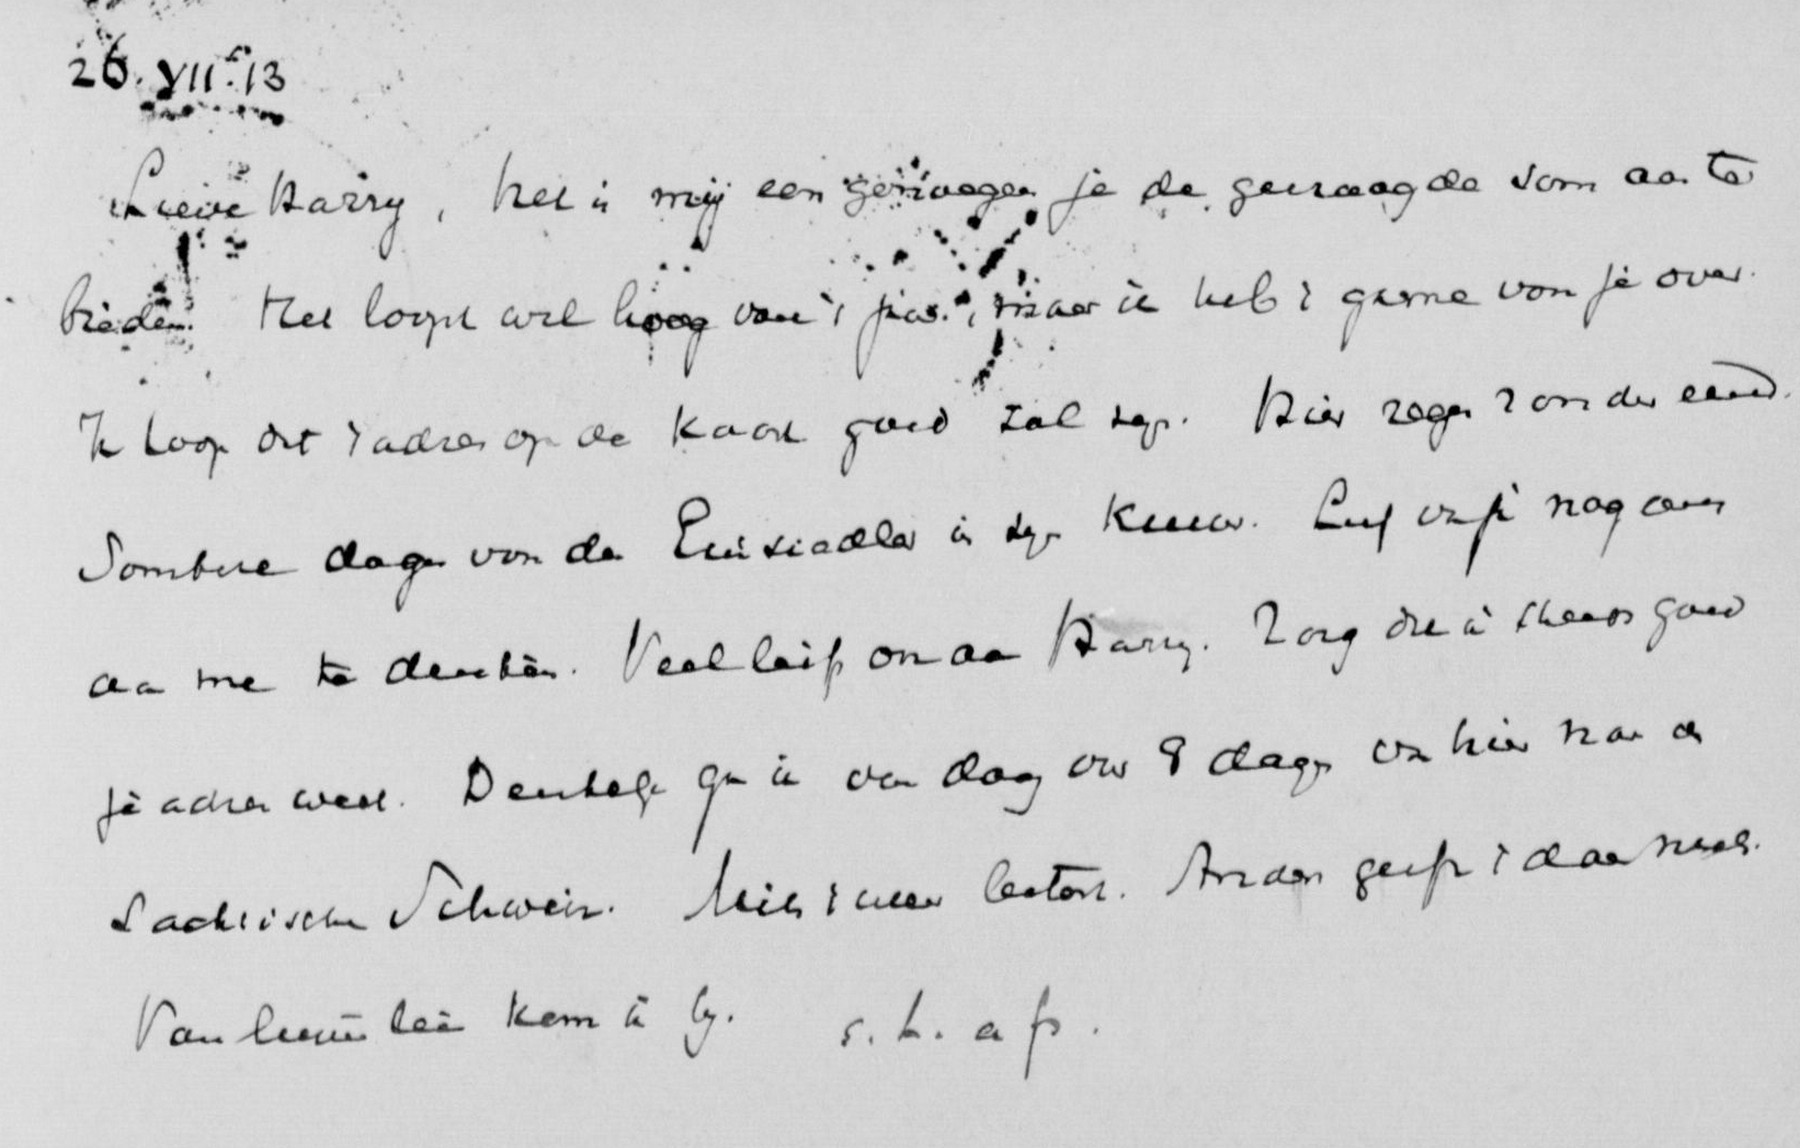 26. VII. 13
Lieve Harry, het is mij een genoegen je de gevraagde som aan te
bieden. Het loopt wel hoog van 't jaar, maar ik heb 't gaarne voor je over.
Ik hoop dat 't adres op de kaart goed zal zijn. Hier regen zonder eind.
Sombere dagen voor de Einsiedler in zijn kamer. Lief van je nog eens
aan me te denken. Veel liefs en aan Harry. Zorg dat ik steeds goed
je adres weet. Denkelijk ga ik van daag over 8 dagen van hier naar de
Sächsische Schweiz. Mits 't weer betert. Anders geeft 't daar niets.
Van lieverlee kom ik bij. s. h. a f.